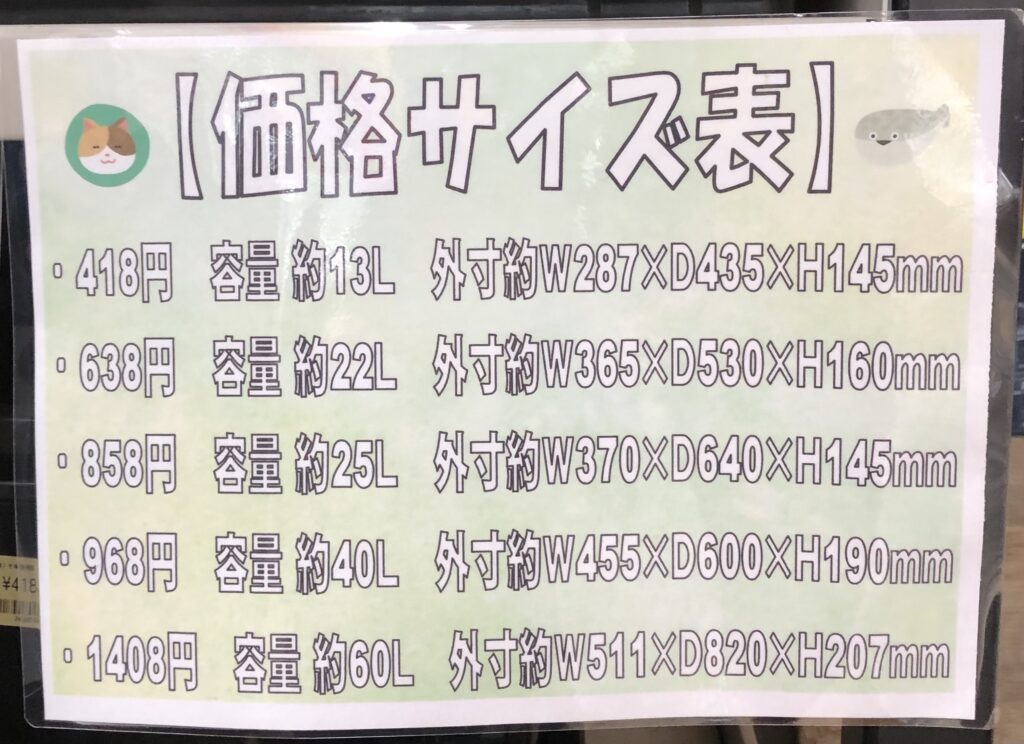 【価格サイズ表】
・418円 容量 約13L 外寸約W287×D435×H145mm
・638円 容量 約22L 外寸約W365×D530×H160mm
・858円 容量 約25L 外寸約W370×D640×H145mm
・968円 容量 約40L 外寸約W455×D600×H190mm
・1408円 容量 約60L 外寸約W511×D820×H207mm
¥418